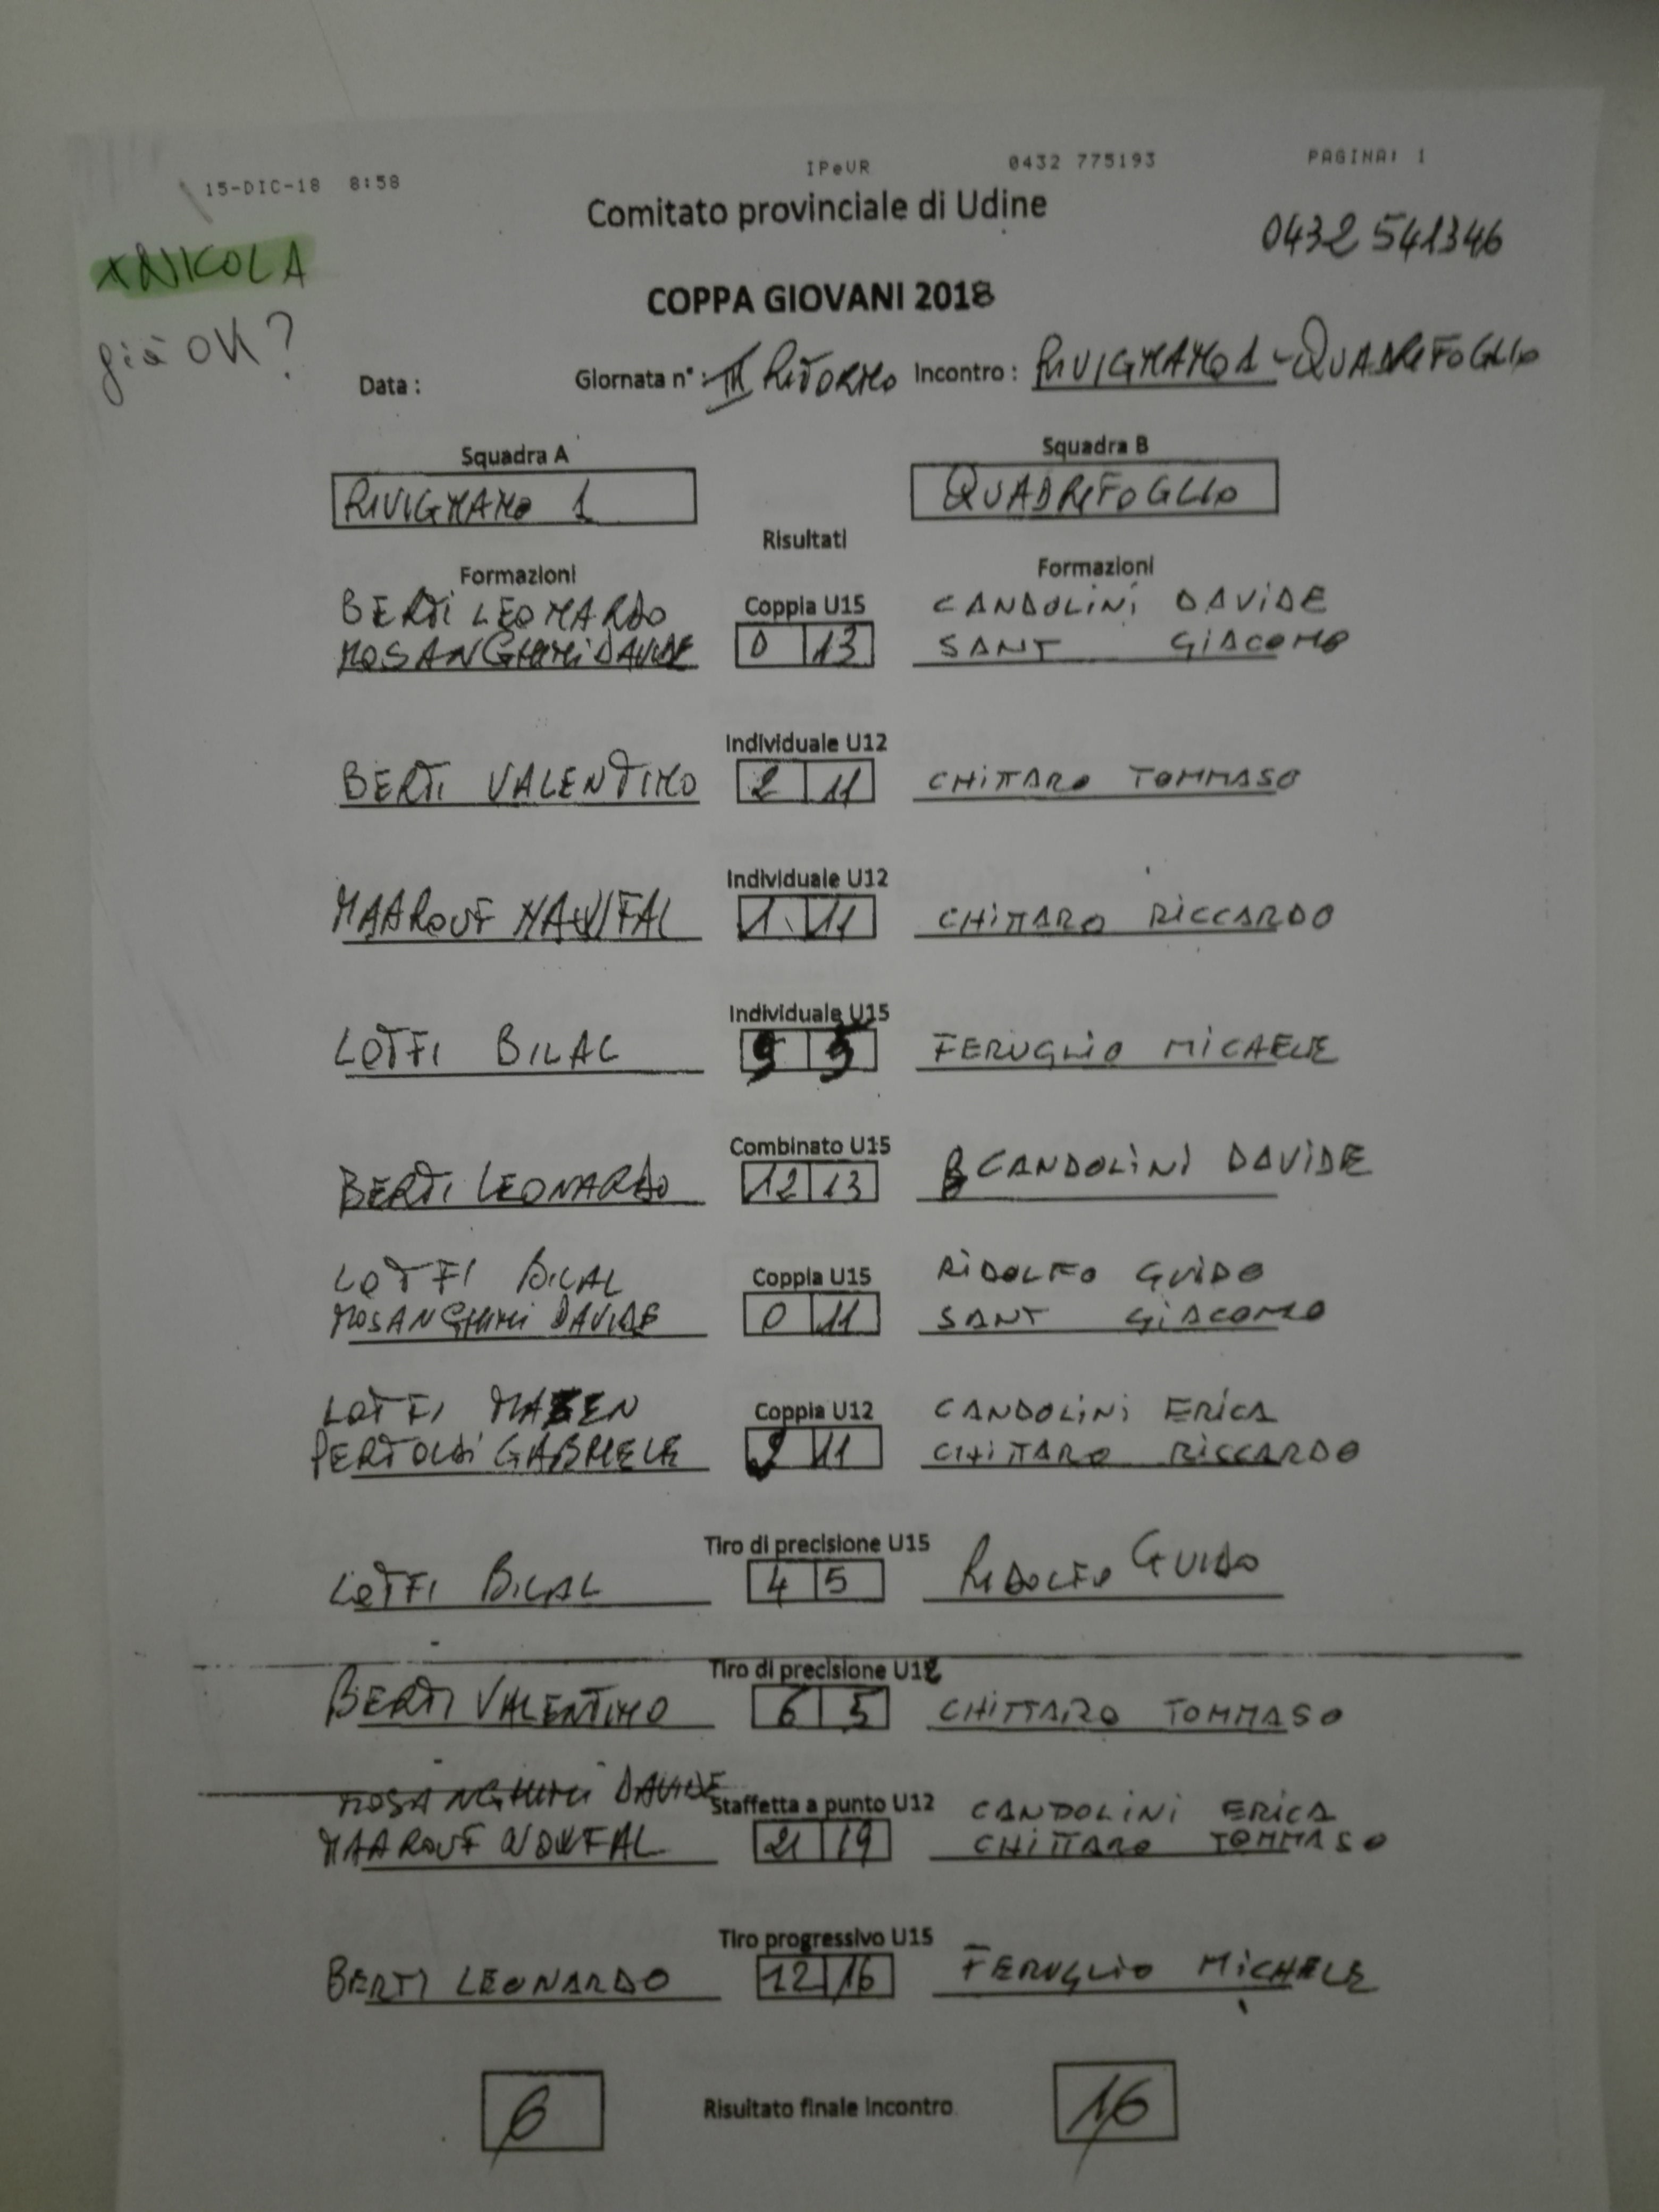 15-DIC-18 8:58 IPeVR 0432 775193 PAGINA: 1
Comitato provinciale di Udine
0432 541346
XNICOLA
già OK?
COPPA GIOVANI 2018
Data : Giornata n° : III RITORNO Incontro : RIVIGNANO 1 - QUADRIFOGLIO
Squadra A Squadra B
RIVIGNANO 1 QUADRIFOGLIO
Risultati
Formazioni Formazioni
BERTI LEONARDO Coppia U15 CANDOLINI DAVIDE
MOSANGHINI DAVIDE 0 13 SANT GIACOMO
Individuale U12
BERTI VALENTINO 2 11 CHITTARO TOMMASO
Individuale U12
MAAROUF NAWFAL 1 11 CHITTARO RICCARDO
Individuale U15
LOTFI BILAL 9 9 FERUGLIO MICAELE
Combinato U15
BERTI LEONARDO 12 13 CANDOLINI DAVIDE
LOTFI BILAL Coppia U15 RIDOLFO GUIDO
MOSANGHINI DAVIDE 0 11 SANT GIACOMO
LOTFI MAZEN Coppia U12 CANDOLINI ERICA
PERTOLDI GABRIELE 11 CHITTARO RICCARDO
Tiro di precisione U15
LOTFI BILAL 4 5 RIDOLFO GUIDO
Tiro di precisione U12
BERTI VALENTINO 6 5 CHITTARO TOMMASO
MOSANGHINI DAVIDE Staffetta a punto U12 CANDOLINI ERICA
MAAROUF NOWFAL 21 19 CHITTARO TOMMASO
Tiro progressivo U15
BERTI LEONARDO 12 16 FERUGLIO MICHELE
6 Risultato finale incontro 16